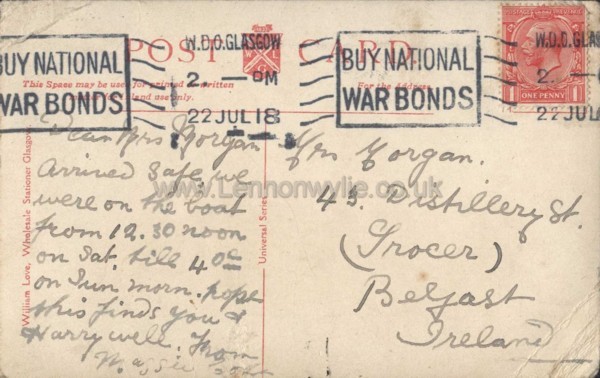 POST CARD
W.D.O. GLASGOW
2. — PM
22 JUL 18
BUY NATIONAL
WAR BONDS
BUY NATIONAL
WAR BONDS
W.D.O. GLAS
2. —
22 JUL
ONE PENNY
This Space may be used for printed or written
land use only.
For the Address
William Love, Wholesale Stationer Glasgow
Universal Series
www.Lennonwylie.co.uk
Dear Mrs Morgan
Arrived safe we
were on the boat
from 12.30 noon
on Sat. till 4 oc
on Sun morn. hope
this finds you &
Harry well. From
Mrs Morgan.
43. Distillery St.
(Grocer)
Belfast
Ireland